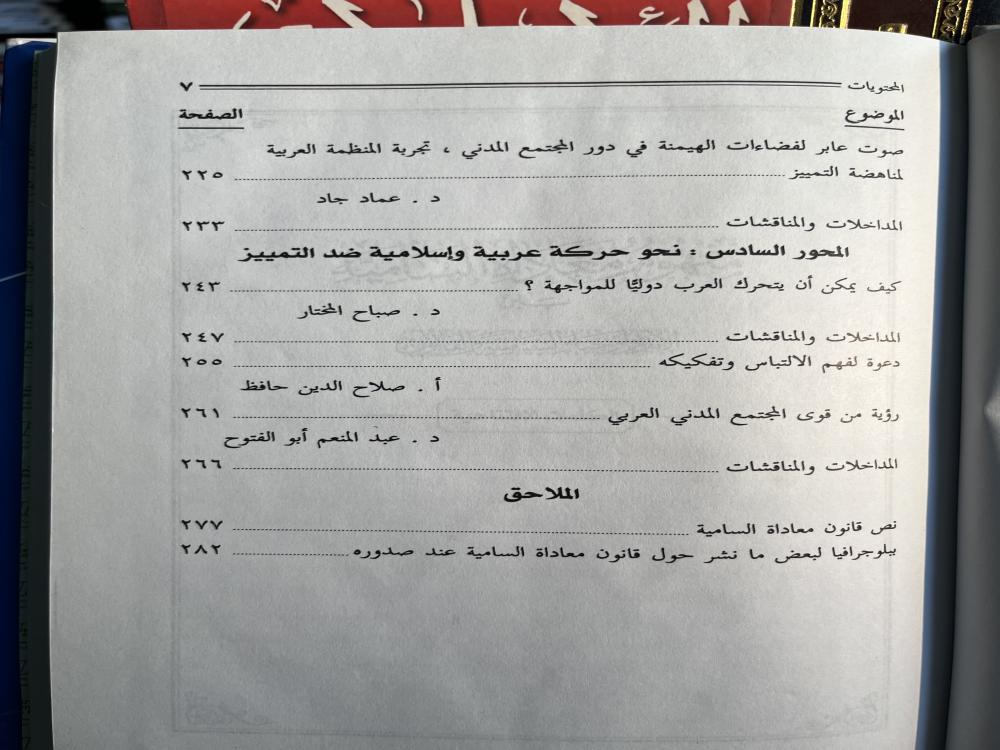 المحتويات ٧
الموضوع الصفحة
صوت عابر لفضاءات الهيمنة في دور المجتمع المدني ، تجربة المنظمة العربية
لمناهضة التمييز ٢٢٥
د . عماد جاد
المداخلات والمناقشات ٢٣٣
المحور السادس : نحو حركة عربية وإسلامية ضد التمييز
كيف يمكن أن يتحرك العرب دوليًّا للمواجهة ؟ ٢٤٣
د . صباح المختار
المداخلات والمناقشات ٢٤٧
دعوة لفهم الالتباس وتفكيكه ٢٥٥
أ . صلاح الدين حافظ
رؤية من قوى المجتمع المدني العربي ٢٦١
د . عبد المنعم أبو الفتوح
المداخلات والمناقشات ٢٦٦
الملاحق
نص قانون معاداة السامية ٢٧٧
ببلوجرافيا لبعض ما نشر حول قانون معاداة السامية عند صدوره ٢٨٢